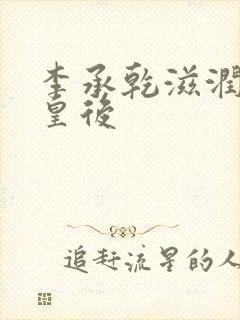 李承乾滋潤
皇後
追赶流星的人